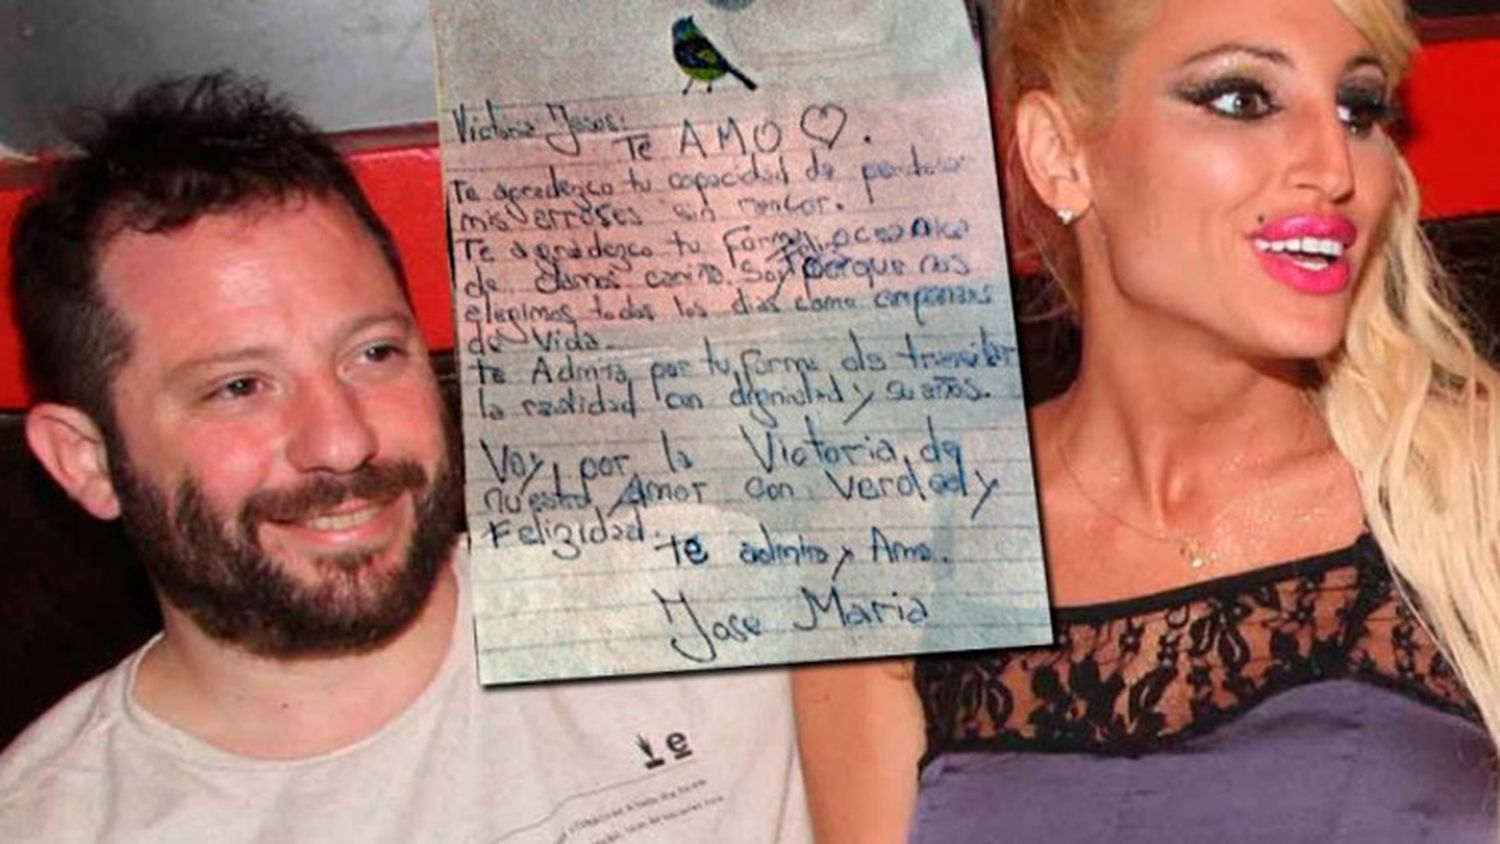 Victoria Jesus:
Te AMO ♡.
Te agradezco tu capacidad de perdonar
mis errores sin rencor.
Te agradezco tu forma oceanica
de darnos cariño. Soy porque nos
elegimos todos los dias como compañeros
de Vida.
te Admiro, por tu forma de transitar
la realidad con dignidad y sueños.
Voy por la Victoria de
nuestro Amor con Verdad y
Felizidad.
te admiro y Amo.
Jose Maria
e